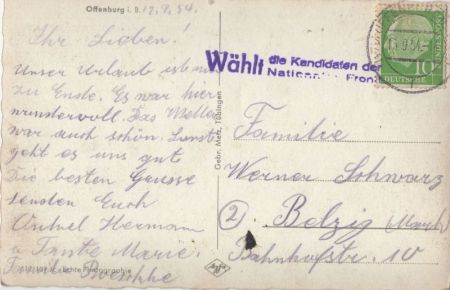 Offenburg i. B. 12.9.54.
Ihr Lieben!
Unser Urlaub ist nun
zu Ende. Es war hier
wundervoll. Das Wetter
war auch schön. Sonst
geht es uns gut
Die besten Grüsse
senden Euch
Onkel Hermann
u Tante Marie.
Familie
Echte Photographie
Gebr. Metz, Tübingen
Wählt die Kandidaten der
Nationalen Front
9.54
10
DEUTSCHE
Familie
Werner Schwarz
2) Belzig (Mark)
Bahnhofstr. 10